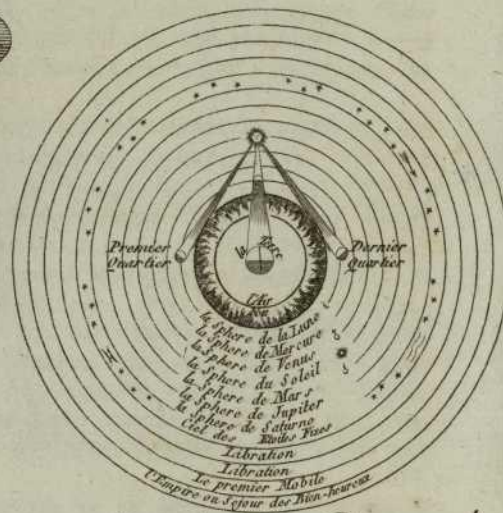 Premier
Quartier
la Terre
Dernier
Quartier
l'Air
feu
la Sphere de la Lune
la Sphere de Mercure
la Sphere de Venus
la Sphere du Soleil
la Sphere de Mars
la Sphere de Jupiter
la Sphere de Saturne
Ciel des Etoiles Fixes
Libration
Libration
Le premier Mobile
l'Empire ou Sejour des Bien-heureux